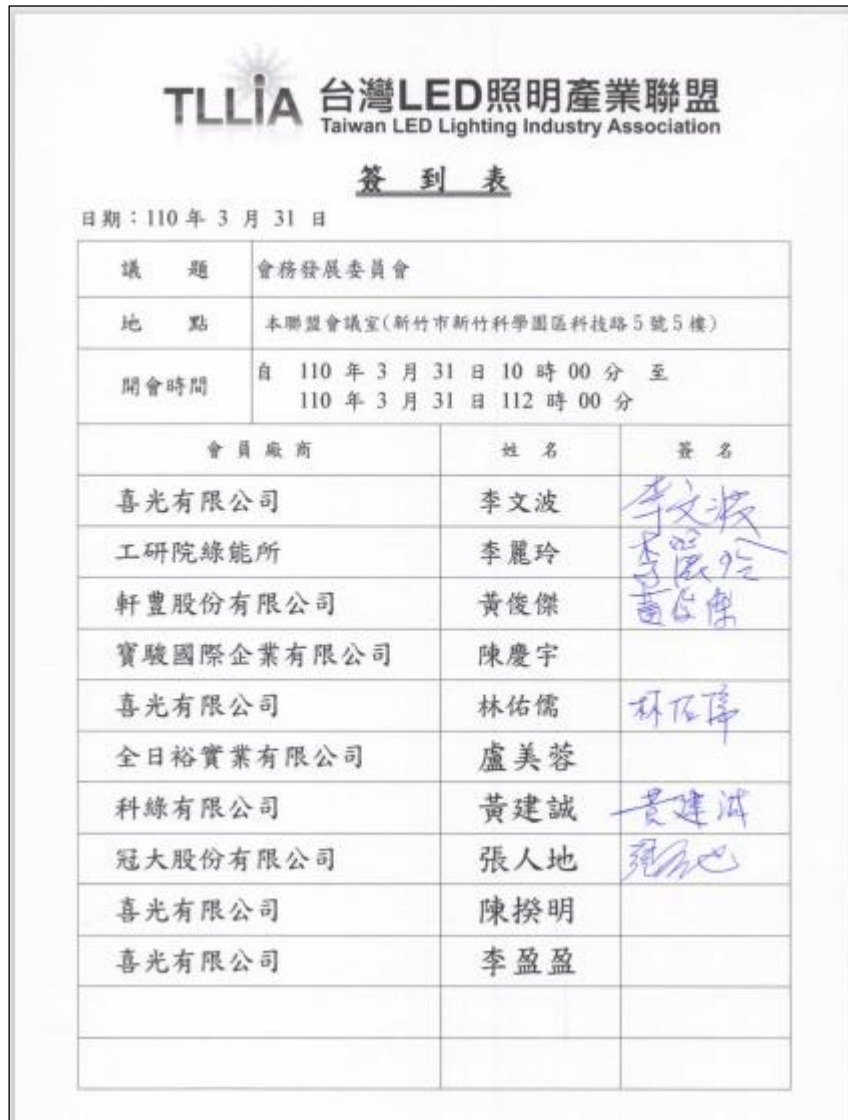 TLLiA 台灣LED照明產業聯盟
Taiwan LED Lighting Industry Association
簽到表
日期：110 年 3 月 31 日
議題 會務發展委員會
地點 本聯盟會議室(新竹市新竹科學園區科技路5號5樓)
開會時間 自 110 年 3 月 31 日 10 時 00 分 至
110 年 3 月 31 日 112 時 00 分
會員廠商 姓名 簽名
喜光有限公司 李文波 李文波
工研院綠能所 李麗玲 李麗玲
軒豐股份有限公司 黃俊傑 黃俊傑
寶駿國際企業有限公司 陳慶宇
喜光有限公司 林佑儒 林佑儒
全日裕實業有限公司 盧美蓉
科綠有限公司 黃建誠 黃建誠
冠大股份有限公司 張人地 張人地
喜光有限公司 陳揆明
喜光有限公司 李盈盈